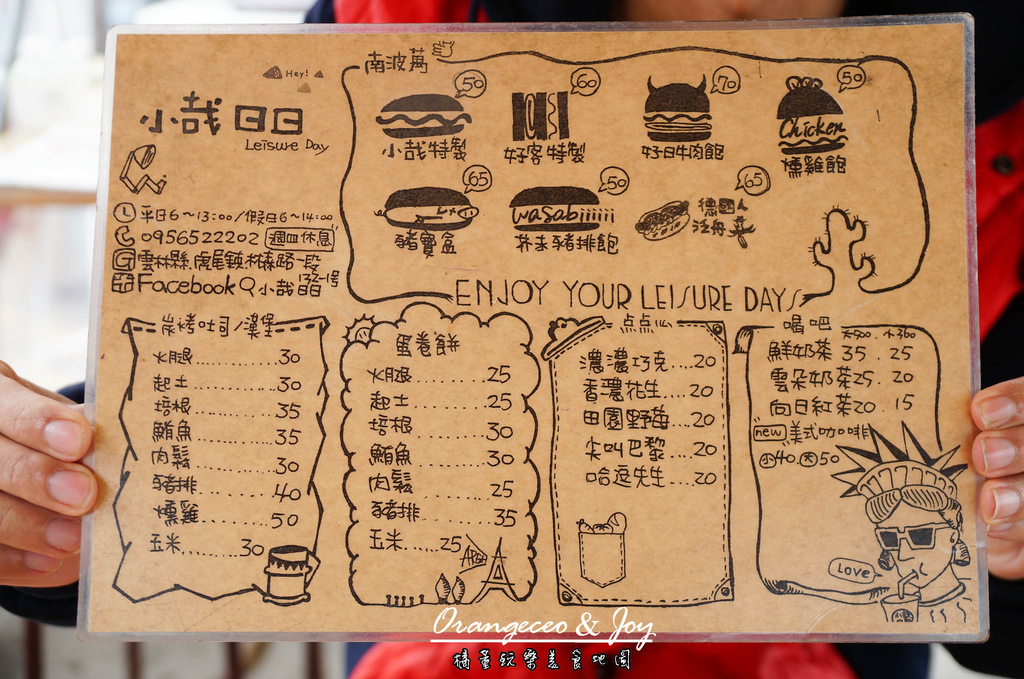 Hey!
小哉日日
Leisure Day
平日6~13:00/假日6~14:00
0956522202 週四休息
雲林縣.虎尾鎮.林森路一段
132-1号
Facebook 小哉日日
南波萬
50
小哉特製
60
好客特製
70
好日牛肉飽
50
Chicken
燻雞飽
65
豬寶盒
50
wasabiiiiii
芥末豬排飽
65
德國人
ENJOY YOUR LEISURE DAYS
炭烤吐司/漢堡
火腿..........30
起士..........30
培根..........35
鮪魚..........35
肉鬆..........30
豬排..........40
燻雞..........50
玉米..........30
蛋卷餅
火腿........25
起士........25
培根........30
鮪魚........30
肉鬆........25
豬排........35
玉米......25
點點心
濃濃巧克....20
香濃花生....20
田園野莓...20
尖叫巴黎....20
哈逗先生....20
喝吧
大500.小360
鮮奶茶 35.25
雲朵奶茶25.20
向日紅茶20.15
new 美式咖啡
小40 大50
LOVE
Orangeceo & Joy
橘董玩樂美食地圖